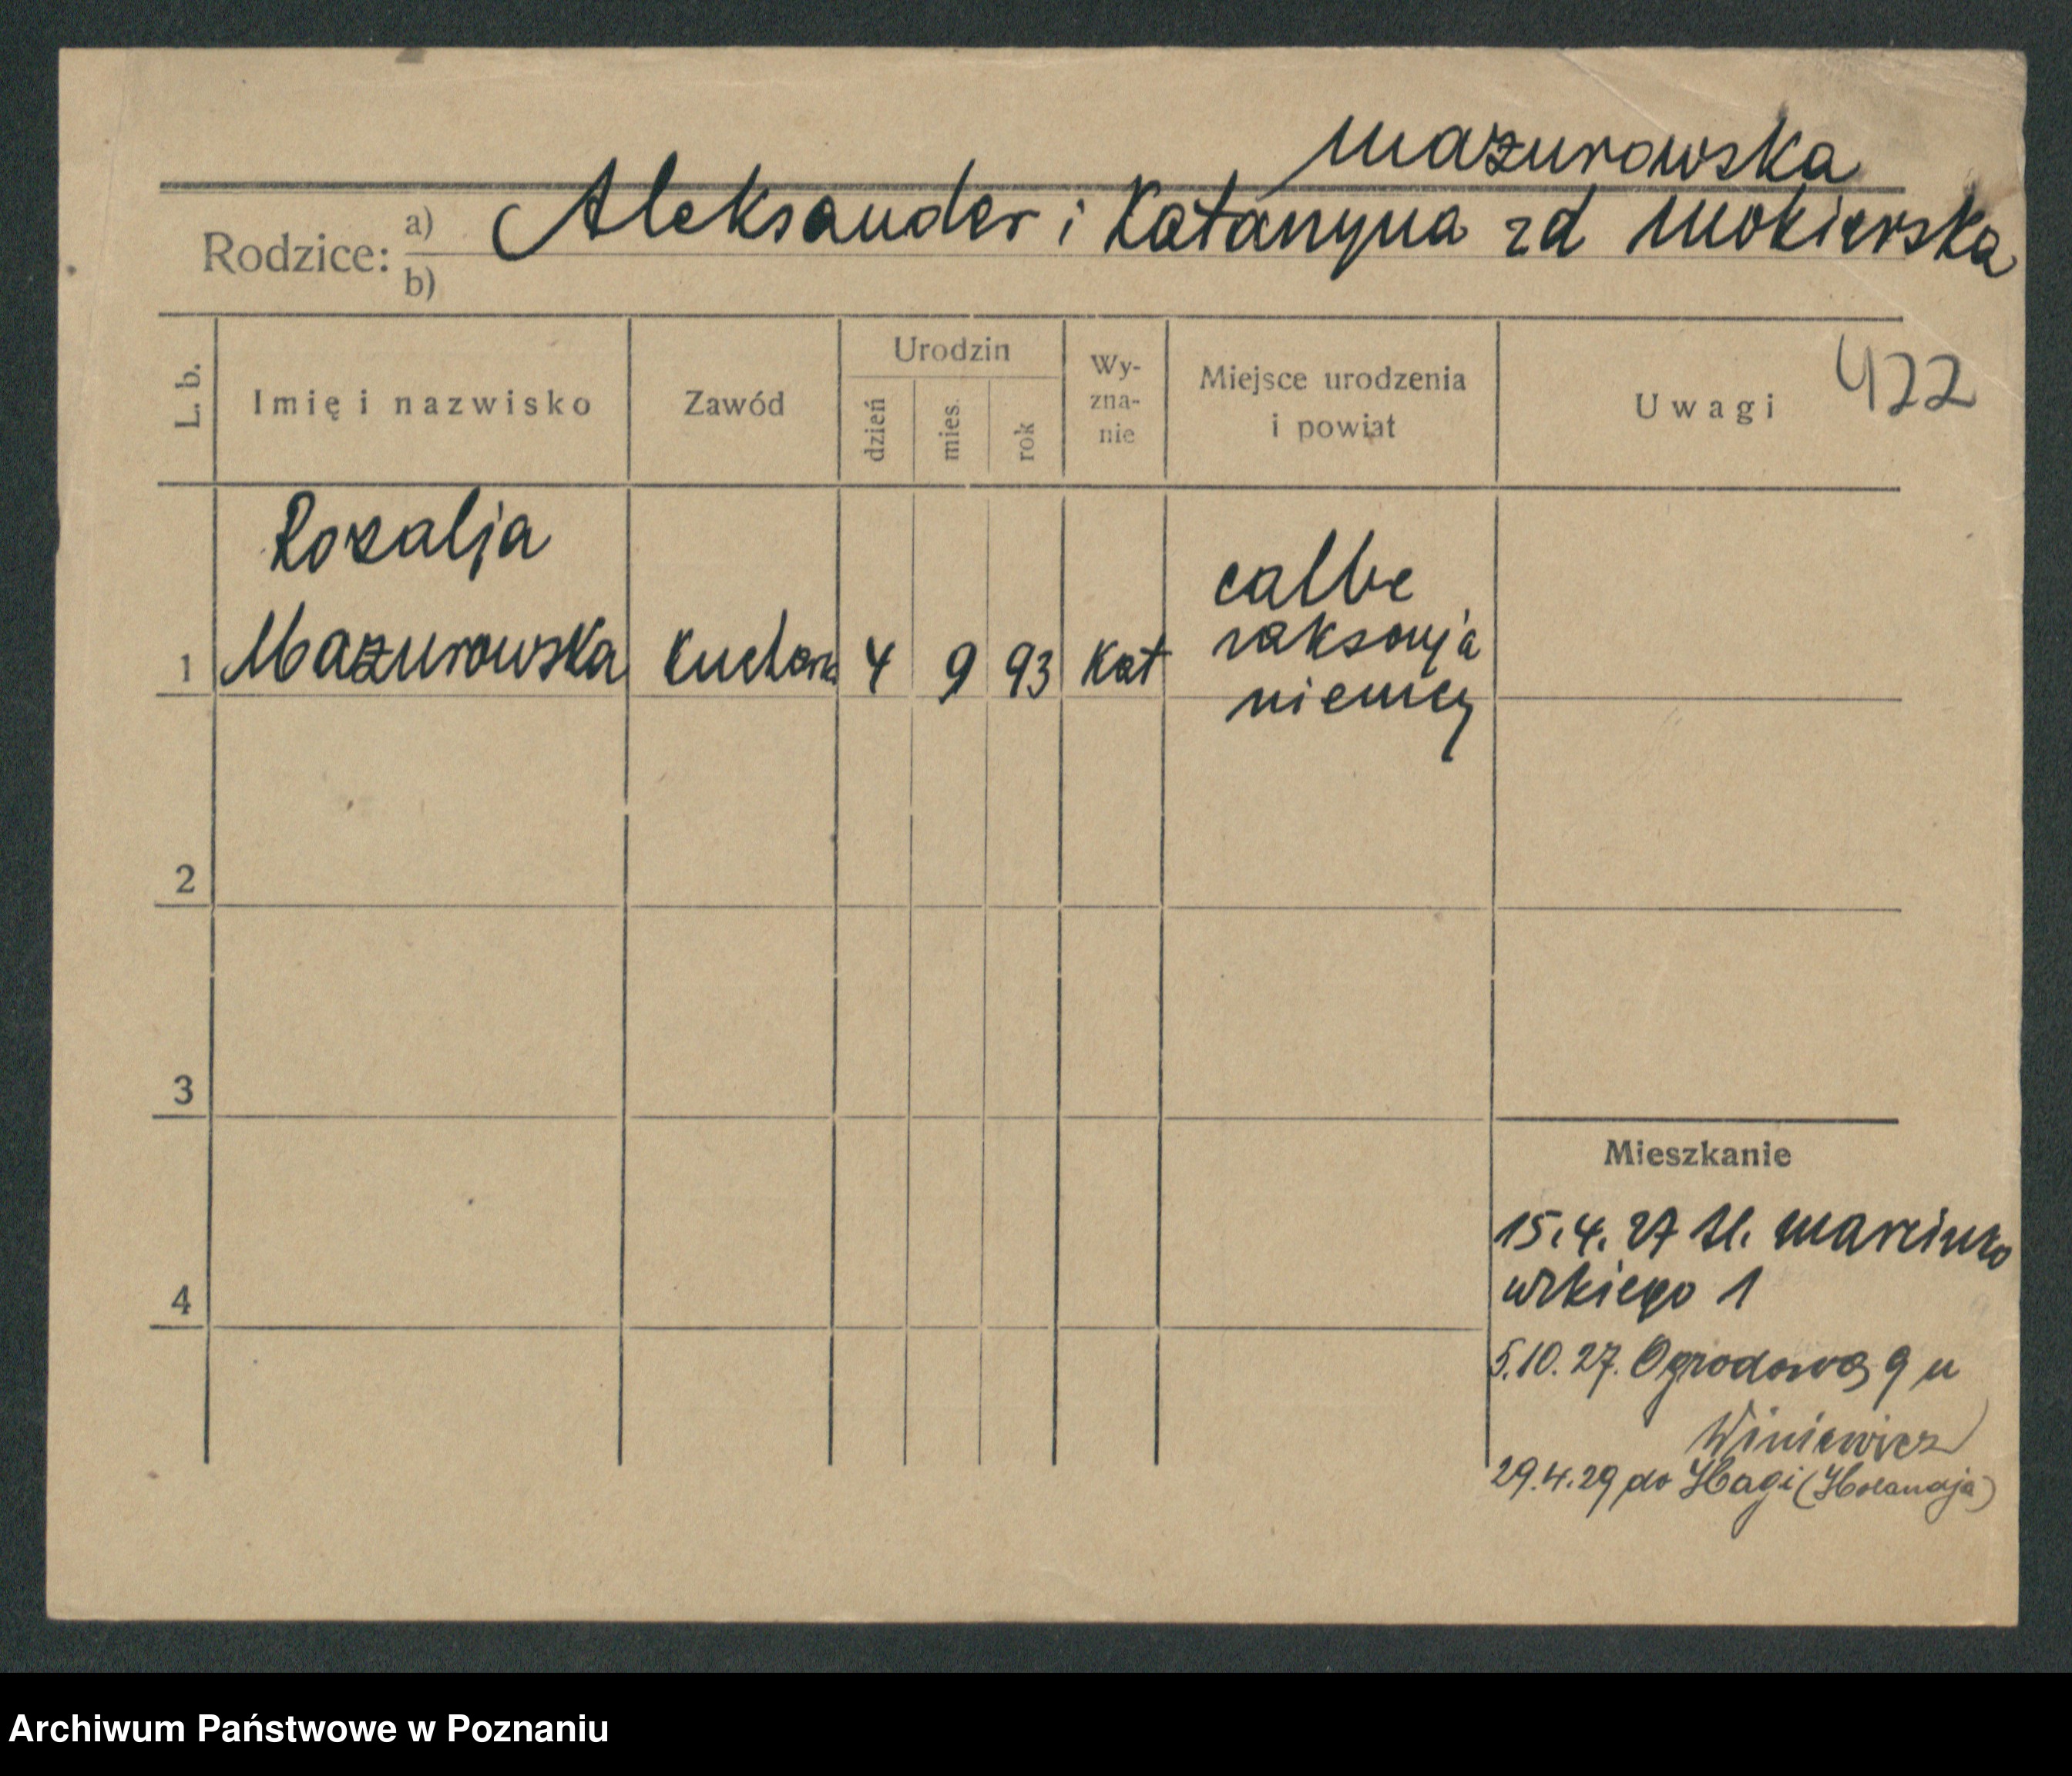 Mazurowska
Rodzice: a) Aleksander i Katarzyna zd Mokierska
b)
L. b. Imię i nazwisko Zawód Urodzin dzień mies. rok Wy-zna-nie Miejsce urodzenia i powiat Uwagi 422
Rozalja
1 Mazurowska Kuchark 4 9 93 Kat calbe
saksonja
niemcy
2
3
Mieszkanie
4
15.4.27 Al. Marcinko
wskiego 1
5.10.27. Ogrodowa 9 u
Winiewicz
29.4.29 do Hagi (Holandja)
Archiwum Państwowe w Poznaniu